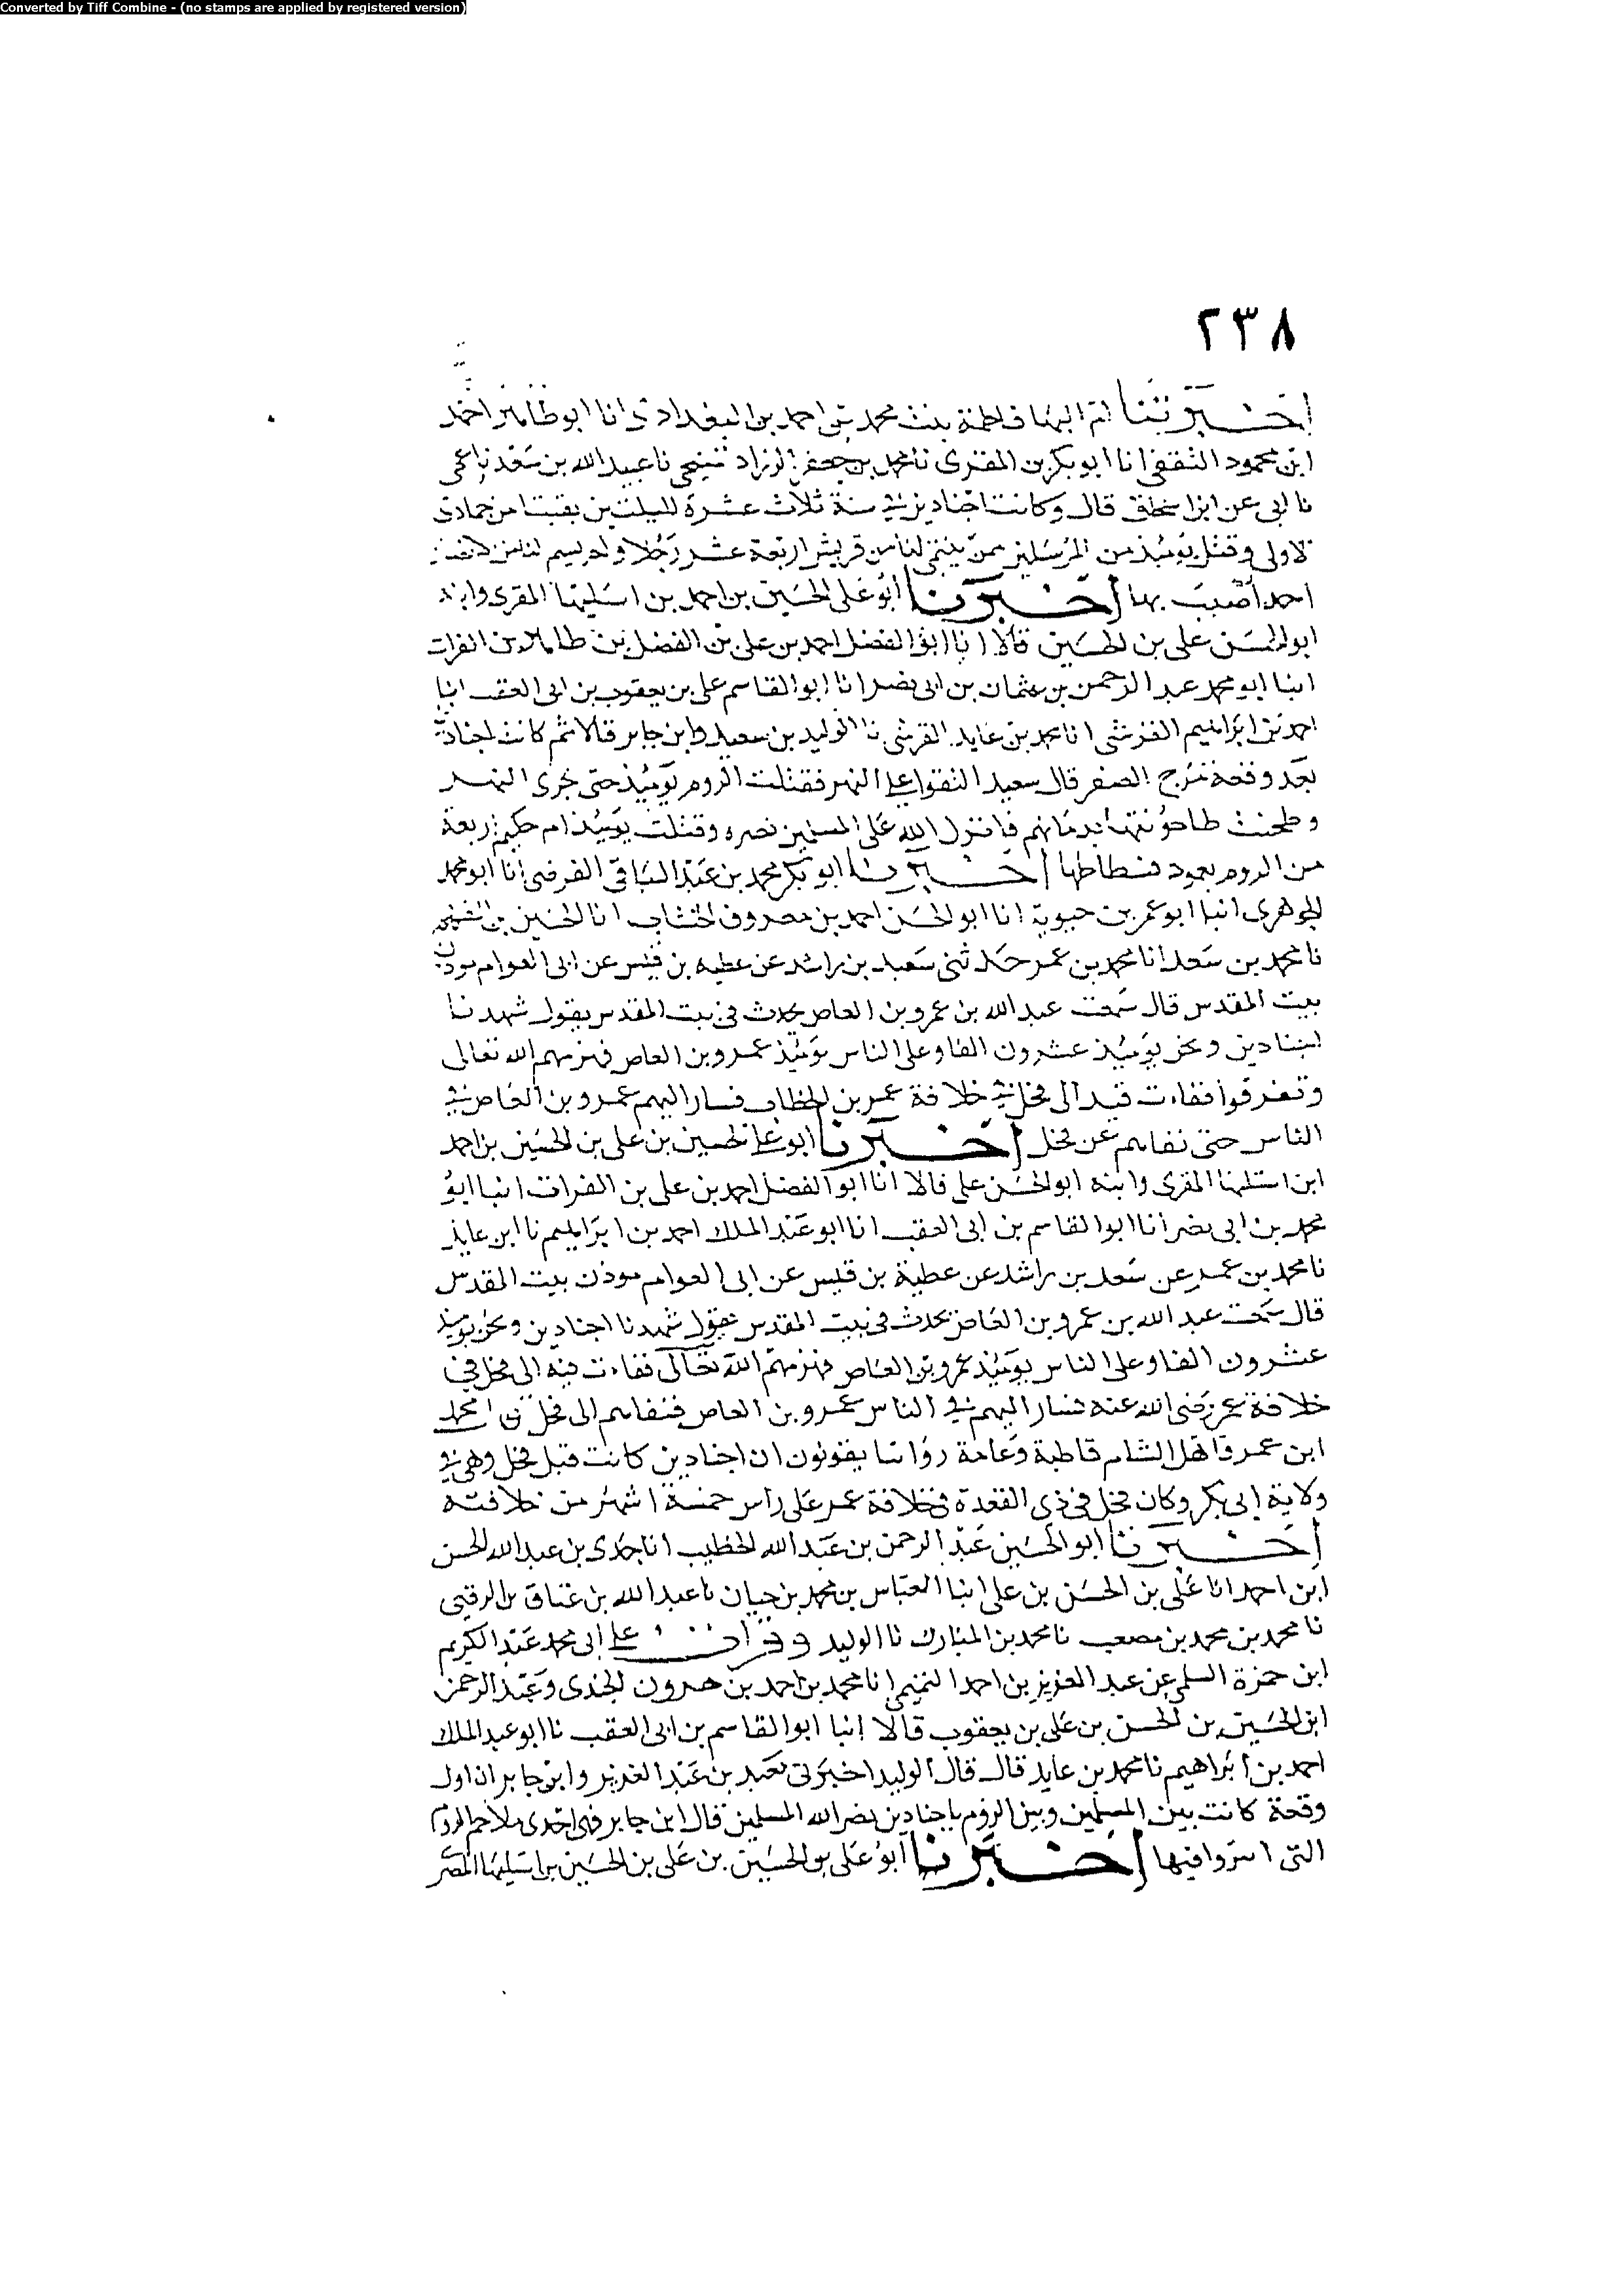 Converted by Tiff Combine - (no stamps are applied by registered version)
٢٣٨
اخبرتنا ام البها فاطمة بنت محمد بن احمد بن البغدادى انا ابو طاهر احمد
ابن محمود الثقفى انا ابو بكر بن المقرى نا محمد بن جعفر الزراد المنبجى نا عبيد الله بن سعد نا عمى
نا ابى عن ابن اسحاق قال وكانت اجنادين فى سنة ثلاث عشرة لليلتين بقيتا من جمادى
الاولى وقتل يومئذ من المسلمين ممن ينتمى لنا من قريش اربعة عشر رجلا ولم يسم لنا من الانصار
احد اصيب بها اخبرنا ابو على الحسين بن احمد بن اشليها المقرى وابنه
ابو الحسن على بن الحسين قالا انا ابو الفضل احمد بن على بن الفضل بن طاهر بن الفرات
انبا ابو محمد عبد الرحمن بن عثمان بن ابى نصر انا ابو القاسم على بن يعقوب بن ابى العقب انبا
احمد بن ابراهيم القرشى انا محمد بن عايد القرشى نا الوليد بن سعيد وابن جابر قالا ثم كانت اجنادين
بعد وقعة مرج الصفر قال سعيد التقوا على النهر فقتلت الروم يومئذ حتى جرى النهر
وطحنت طاحونتها بدمائهم فانزل الله على المسلمين نصره وقتلت يومئذ ام حكيم اربعة
من الروم بعمود فسطاطها اخبرنا ابو بكر محمد بن عبد الباقى الفرضى انا ابو محمد
الجوهرى انبا ابو عمر بن حيوية انا ابو الحسن احمد بن معروف الخشاب انا الحسين بن الفهم
نا محمد بن سعد انا محمد بن عمر حدثنى سعيد بن راشد عن عطيه بن قيس عن ابى العوام موذن
بيت المقدس قال سمعت عبد الله بن عمرو بن العاص يحدث فى بيت المقدس يقول شهدنا
اجنادين ونحن يومئذ عشرون الفا وعلى الناس يومئذ عمرو بن العاص فهزمهم الله تعالى
وتفرقوا ففاءت فيه الى فحل فى خلافة عمر بن الخطاب فسار اليهم عمرو بن العاص فى
الناس حتى نفاهم عن فحل اخبرنا ابو على الحسين بن على بن الحسين بن احمد
ابن اشليها المقرى وابنه ابو الحسن على قالا انا ابو الفضل احمد بن على بن الفرات انبا ابو
محمد بن ابى نصر انا ابو القاسم بن ابى العقب انا ابو عبد الملك احمد بن ابراهيم نا ابن عايذ
نا محمد بن عمر عن سعد بن راشد عن عطية بن قيس عن ابى العوام موذن بيت المقدس
قال سمعت عبد الله بن عمرو بن العاص يحدث فى بيت المقدس يقول شهدنا اجنادين ونحن يومئذ
عشرون الفا وعلى الناس يومئذ عمرو بن العاص فهزمهم الله تعالى ففاءت فيه الى فحل فى
خلافة عمر رضى الله عنه فسار اليهم فى الناس عمرو بن العاص فنفاهم الى فحل محمد
ابن عمر قال اهل الشام قاطبة وعامة رواتنا يقولون ان اجنادين كانت قبل فحل وهى فى
ولاية ابى بكر وكان فحل فى ذى القعدة فى خلافة عمر على راس خمسة اشهر من خلافته
اخبرنا ابو الحسين عبد الرحمن بن عبد الله الخطيب انا جدى بن عبد الله الحسن
ابن احمد انا على بن الحسن بن على انبا العباس بن محمد بن حيان نا عبد الله بن عتاب بن الزفتى
نا محمد بن محمد بن مصعب نا محمد بن المبارك نا الوليد وقرات على ابى محمد عبد الكريم
ابن حمزة السلمى عن عبد العزيز بن احمد التميمى انا محمد بن احمد بن هرون الجندى وعبد الرحمن
ابن الحسين بن الحسن بن على بن يعقوب قالا انبا ابو القاسم بن ابى العقب نا ابو عبد الملك
احمد بن ابراهيم نا محمد بن عايد قال قال الوليد اخبرنى سعيد بن عبد العزيز وابن جابر ان اول
وقعة كانت بين المسلمين وبين الروم باجنادين نصر الله المسلمين قال ابن جابر فهى احدى ملاحم الروم
التى ابيروا فيها اخبرنا ابو على بن الحسين بن على بن الحسين بن اشليها المصرى